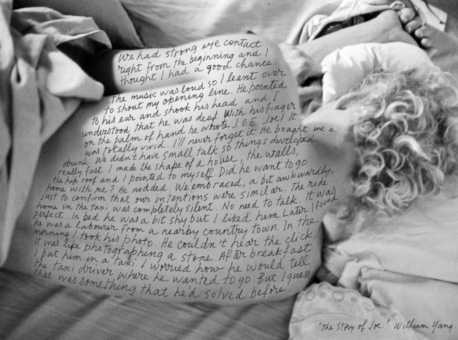 We had strong eye contact
right from the beginning and I
thought I had a good chance
The music was loud so I leant over
to shout my opening line. He pointed
to his ear and shook head and I
understood that he was deaf. With his finger
on the palm of hand he wrote J O E Joe! It
was totally vivid. I'll never forget it. He bought me a
drink. We didn't have small talk so things developed
really fast. I made the shape of a house, the walls
the hip roof and I pointed to myself. Did he want to go
home with me? He nodded. We embraced, a bit awkwardly,
just to confirm that our intentions were similar. The ride
home in the taxi was completely silent. No need to talk. It was
perfect. In bed he was a bit shy but I liked him. Later I found
he was a labourer from a nearby country town. In the
morning I took his photo. He couldn't hear the click
it was like photographing a stone. After breakfast
I put him in a taxi. I worried how he would tell
the taxi driver where he wanted to go. But I guess
that was something that he'd solved before
"The Story of Joe" William Yang.